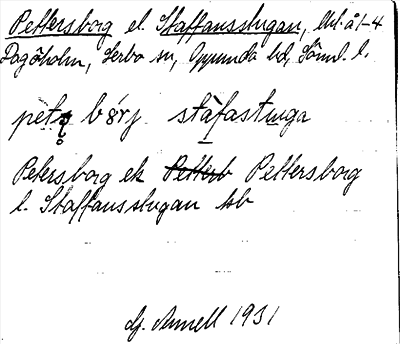 Pettersborg el. Staffansstugan, Utj. å 1-4
Dagöholm, Lerbo sn, Oppunda hd, Söml. l.
petƍ bórj stàfastuga
Petersborg ek Petterb Pettersborg
l. Staffansstugan hb
Gf. Annell 1931